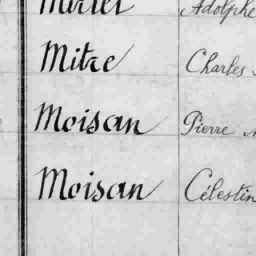 Adolphe
Mitre Charles
Moisan Pierre
Moisan Célestin